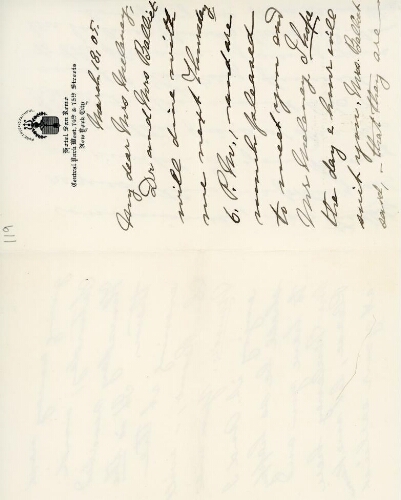 Hotel San Remo
Central Park West, 74th & 75th Streets
New York City
March 18, 05.
My dear Mrs
Dr. and Mrs Balliet
will dine with
me next Thursday
6. P. M., and are
much pleased
to meet you and
Mr I hope
the day & hour will
suit you, Mrs. Balliet
said, & that they are
119